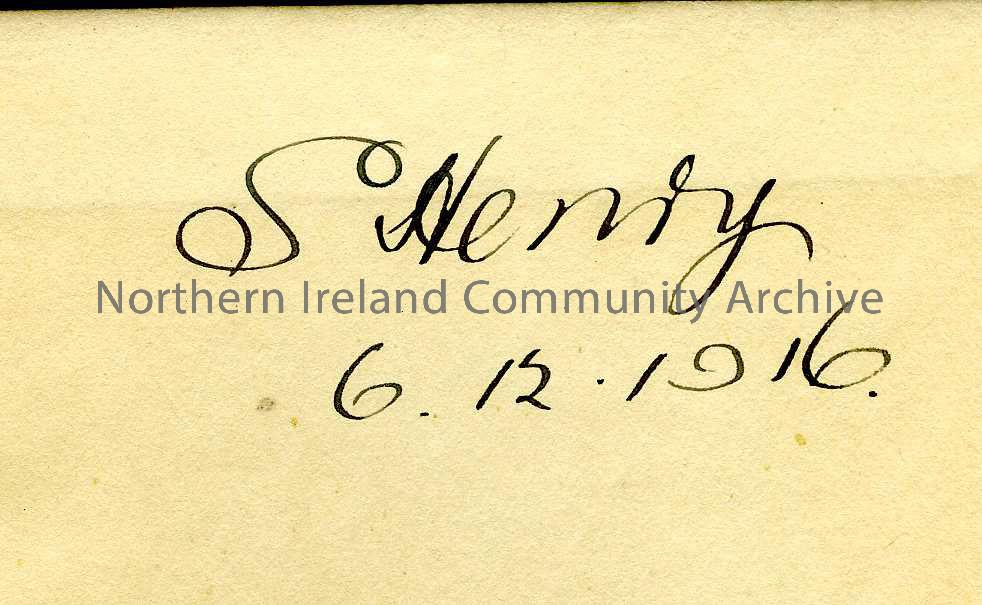 S Henry
Northern Ireland Community Archive
6.12.1916.